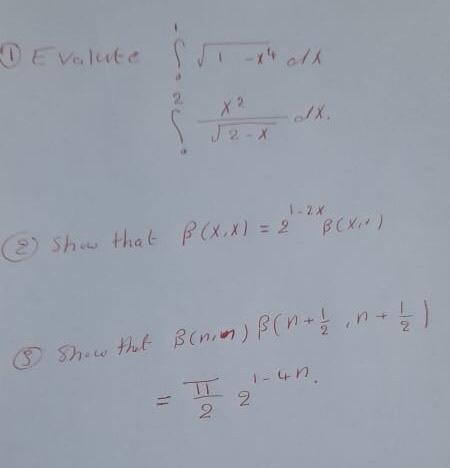 ① Evalute ∫₀¹ √(1 - x⁴) dx
∫₀² x² / √(2 - x) dx.
② Show that β(x,x) = 2^(1-2x)
③ Show that B(n,n) β(n + 1/2, n + 1/2)
= π/2 2^(1-4n).